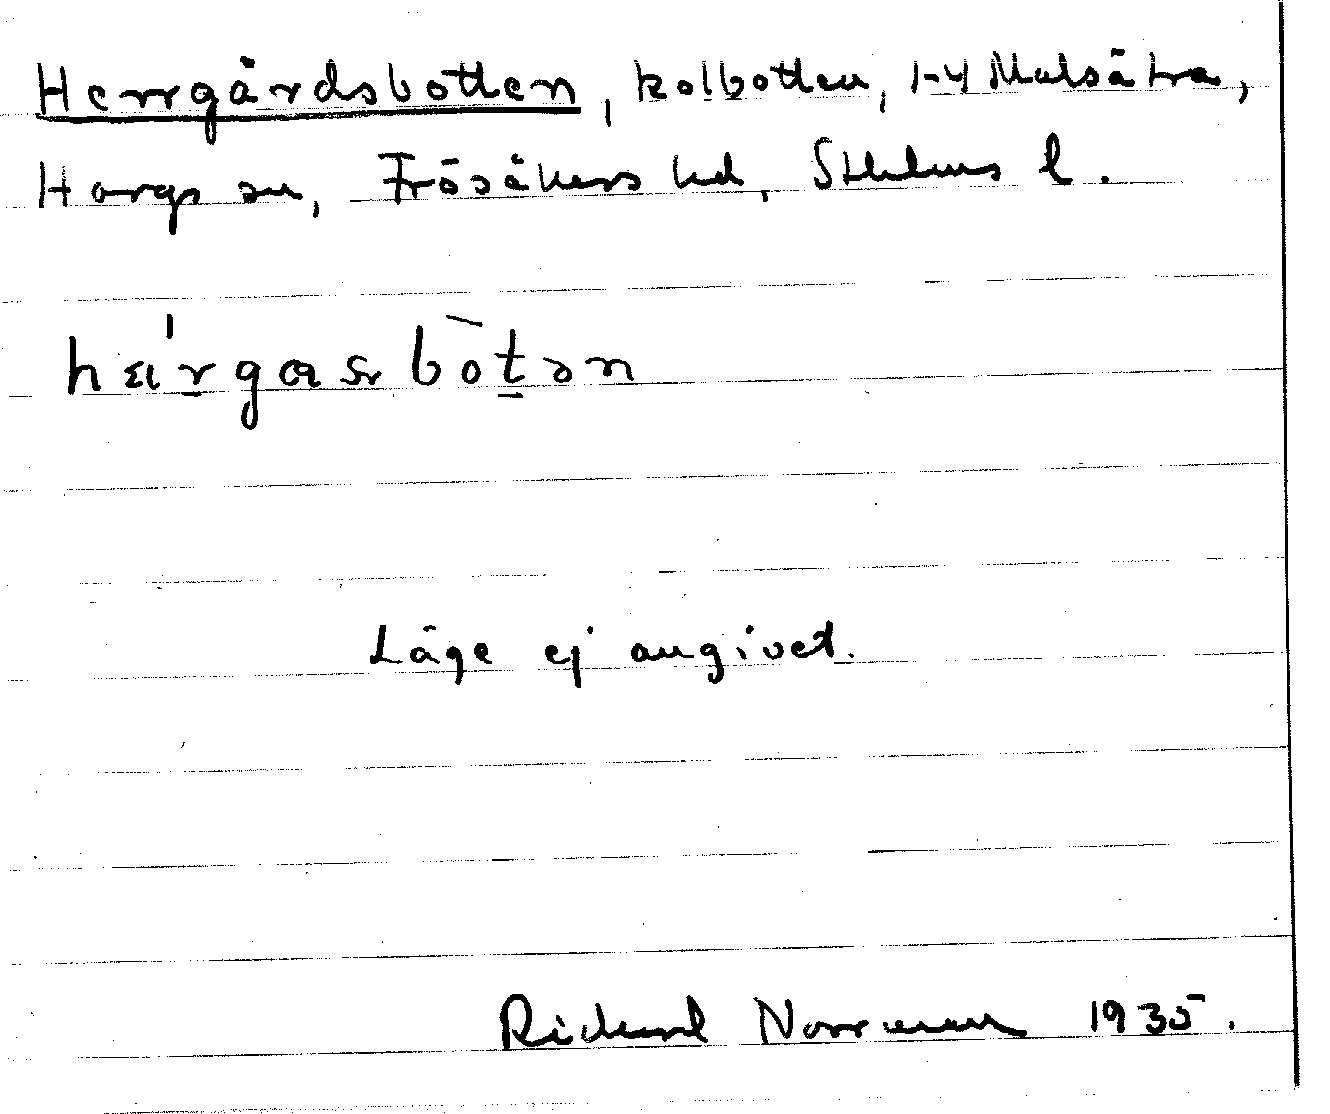 Herrgårdsbotten, kolbotten, 1-4 Malsätra,
Hargs sn, Frösåkers hd, Sthlms l.
härgasbòtən
Läge ej angivet.
Rickard Norrman 1935.